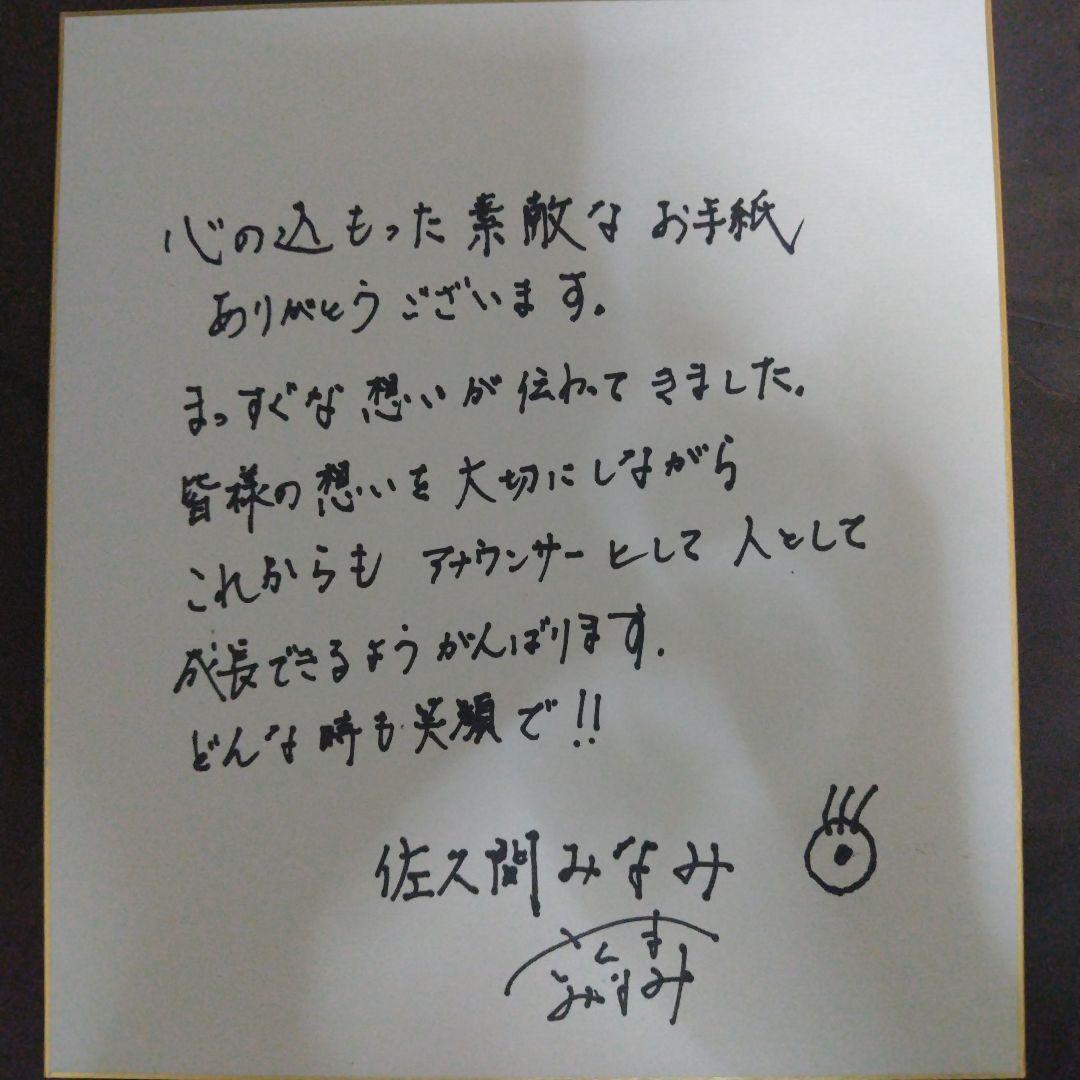 心の込もった素敵なお手紙
ありがとうございます。
まっすぐな想いが伝わってきました。
皆様の想いを大切にしながら
これからも アナウンサーとして 人として
成長できるようがんばります.
どんな時も笑顔で!!
佐久間みなみ
さくま
みなみ